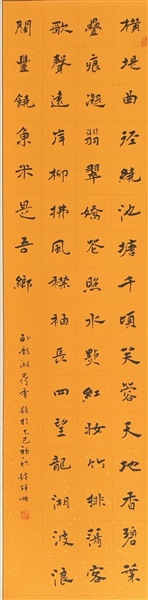 橫堤曲徑繞池塘千頃芙蓉天地香碧葉
疊痕凝翡翠嬌花照水顯紅妝竹排蕩客
歌聲遠岸柳拂風襟袖長四望龍湖波浪
闊豐饒魚米是吾鄉
臥龍湖荷香 於乙巳初秋